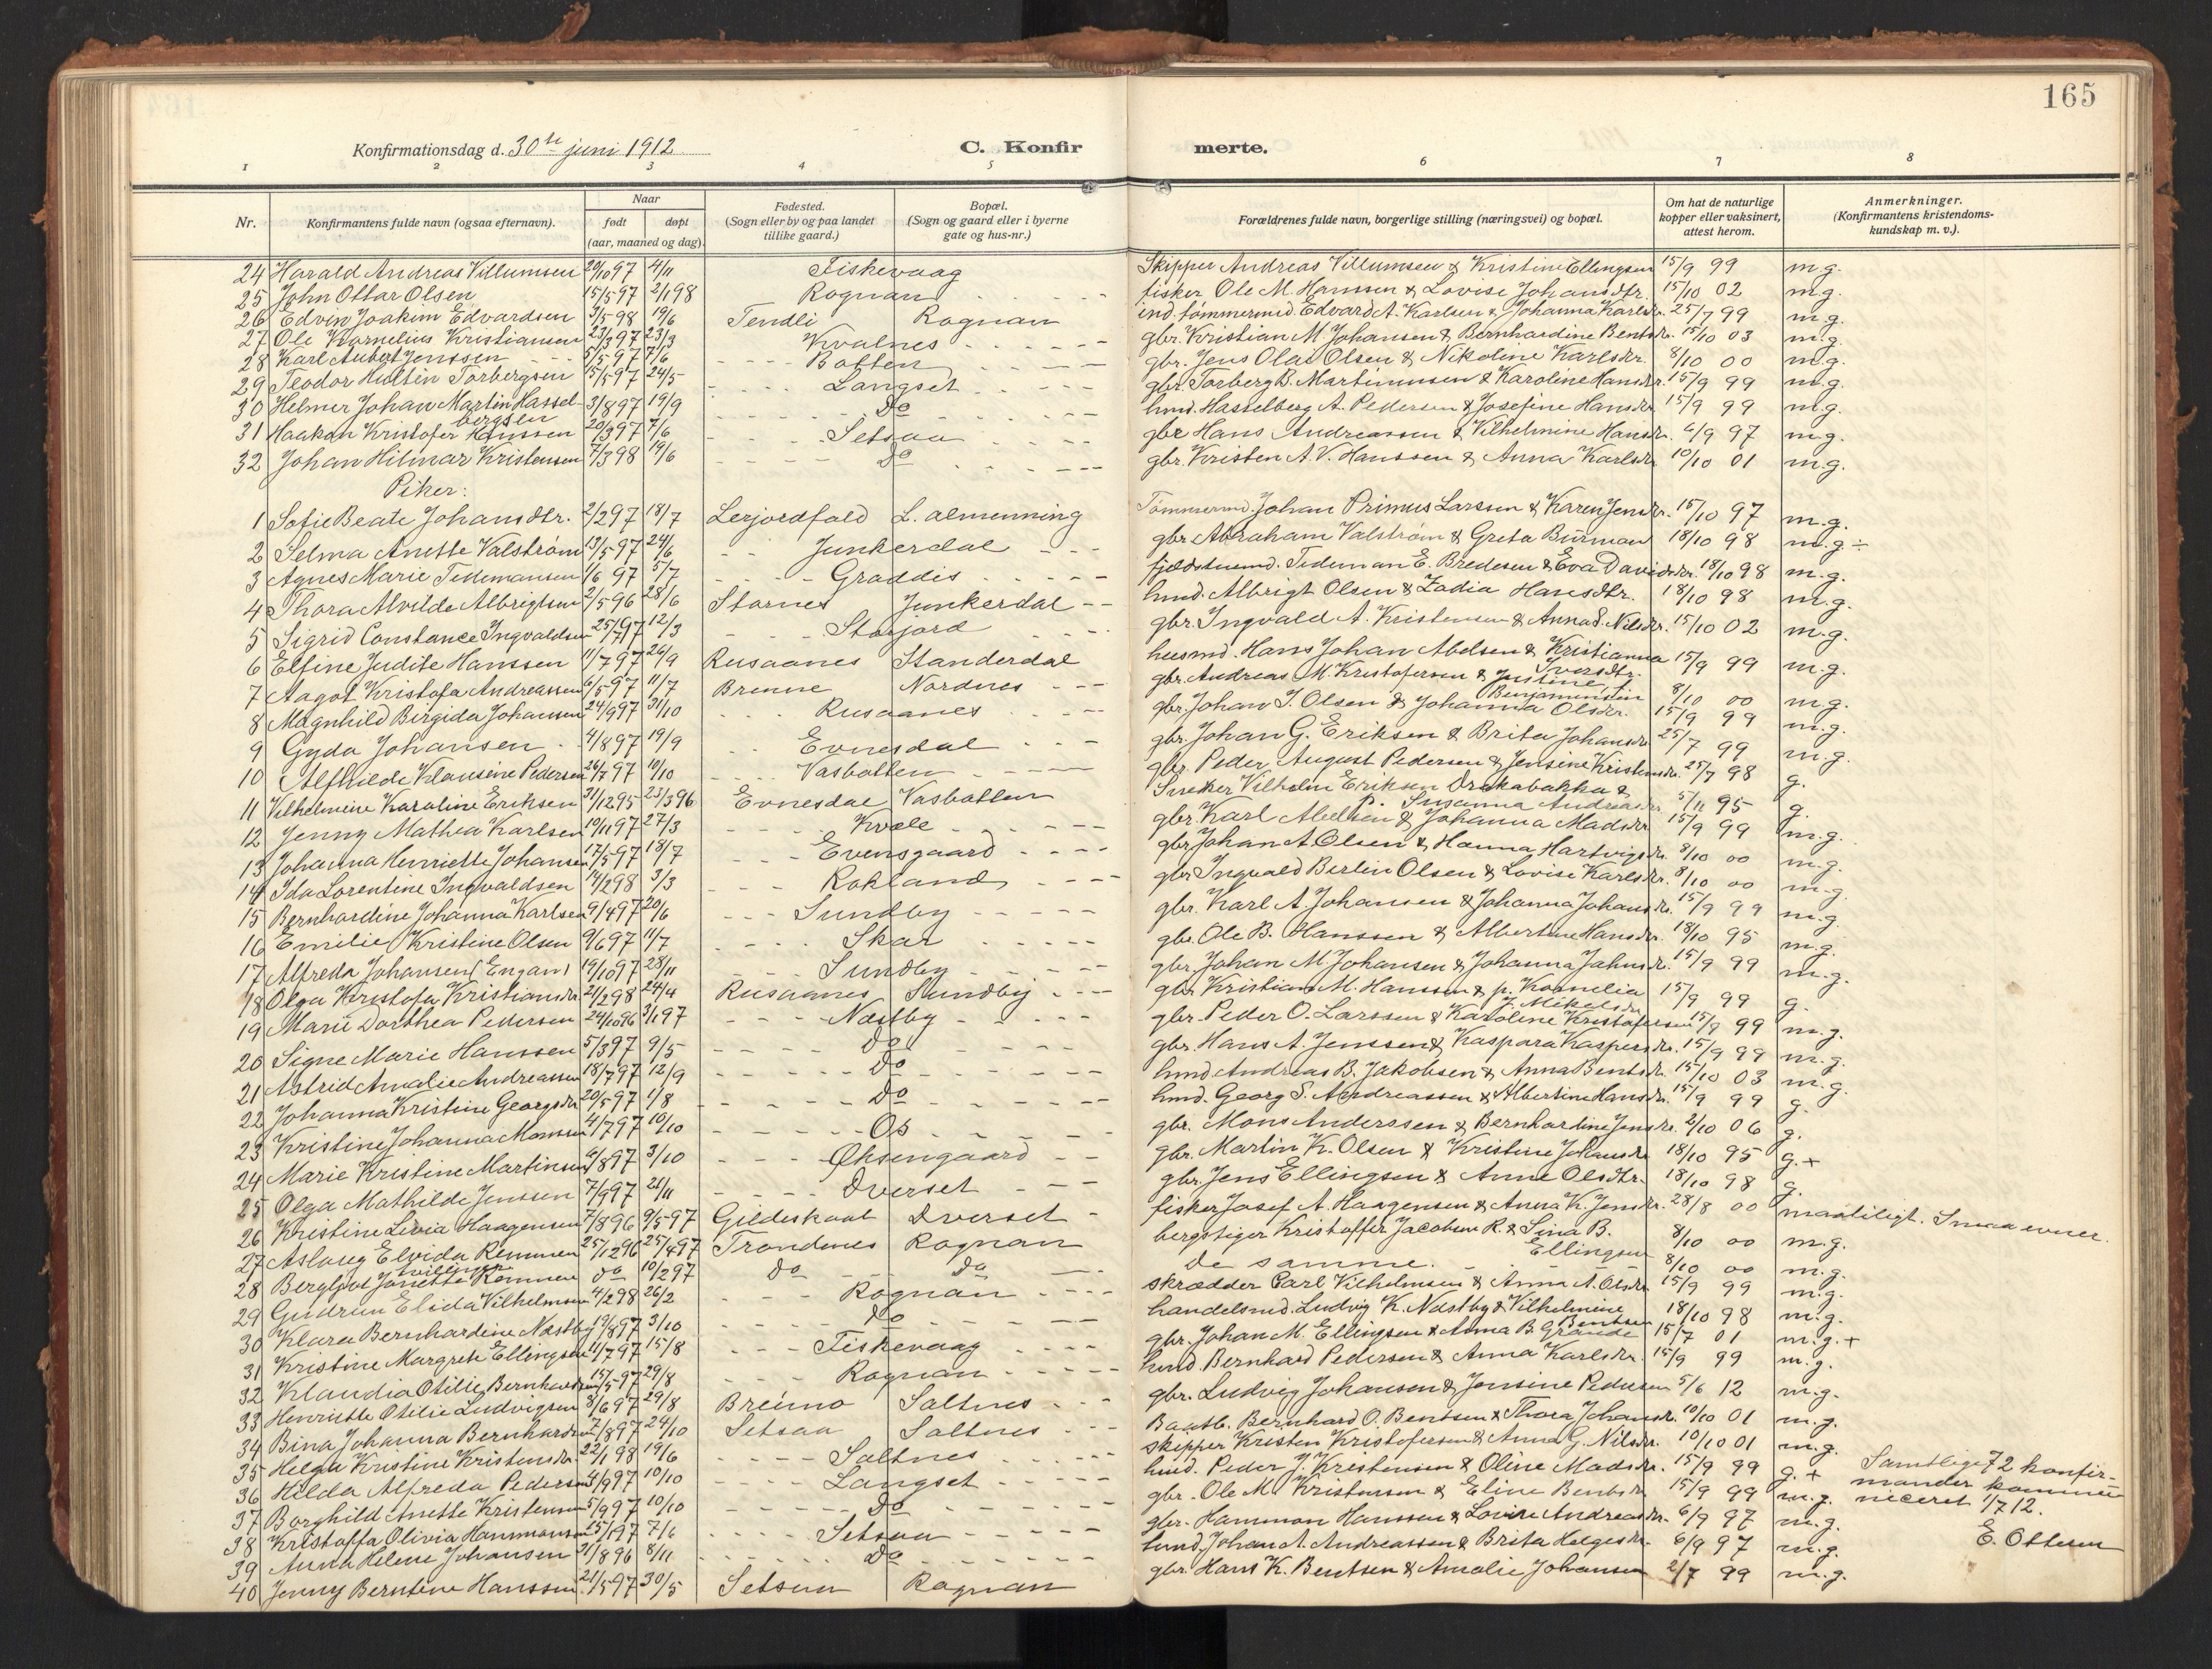 165
Konfirmationsdag d. 30te juni 1912
C. Konfirmerte.
1 2 3 4 5 6 7 8
Nr. Konfirmantens fulde navn (ogsaa efternavn). Naar født døpt (aar, maaned og dag). Fødested. (Sogn eller by og paa landet tillike gaard.) Bopæl. (Sogn og gaard eller i byerne gate og hus-nr.) Forældrenes fulde navn, borgerlige stilling (næringsvei) og bopæl. Om hat de naturlige kopper eller vaksinert, attest herom. Anmerkninger. (Konfirmantens kristendomskundskap m. v.).
24 Harald Andreas Villumsen 29/10 97 4/11 Fiskevaag Skipper Andreas Villumsen & Kristine Ellingsen 15/9 99 m.g.
25 John Ottar Olsen 15/5 97 2/1 98 Rognan fisker Ole M. Hanssen & Lovise Johansdtr. 15/10 02 m.g.
26 Edvin Joakim Edvardsen 3/5 98 19/6 Tendli Rognan ind. tømmermd. Edvard A. Karlsen & Johanna Karlsdr. 25/7 99 m.g.
27 Ole Kornelius Kristiansen 23/3 97 23/3 Kvalnes gbr. Kristian M. Johansen & Bernhardine Bentsdr. 15/10 03 m.g.
28 Karl Aubert Jenssen 5/5 97 7/6 Botten gbr. Jens Olai Olsen & Nikoline Karlsdr. 8/10 00 m.g.
29 Teodor Hultin Torbergsen 15/5 97 24/5 Langset gbr. Torberg B. Martinussen & Karoline Hansdr. 15/9 99 m.g.
30 Helmer Johan Martin Hasselbergsen 3/8 97 19/9 Do hmd. Hasselberg A. Pedersen & Josefine Hansdr. 15/9 99 m.g.
31 Haakon Kristofer Hanssen 20/3 97 7/6 Setsaa gbr Hans Andreassen & Vilhelmine Hansdr. 6/9 97 m.g.
32 Johan Hilmar Kristensen 7/3 98 19/6 Do gbr. Kristen A. V. Hanssen & Anna Karlsdr. 10/10 01 m.g.
Piker:
1 Sofie Beate Johansdtr. 2/2 97 18/7 Lerjordfald L. almenning Tømmermd. Johan Primus Larssen & Karen Jensdr. 15/10 97 m.g.
2 Selma Anette Valstrøm 13/5 97 24/6 Junkerdal gbr Abraham Valstrøm & Greta Burman 18/10 98 m.g ÷
3 Agnes Marie Tidemansen 1/6 97 5/7 Graddis fjeldstuemd. Tideman E. Bredesen & Eva Davidsdr. 18/10 98 m.g.
4 Thora Alvilde Albrigtsen 2/5 96 28/6 Stornes Junkerdal hmd. Albrigt Olsen & Zadia Hansdtr. 18/10 98 m.g.
5 Sigrid Constance Ingvaldsen 25/1 97 12/3 Storjord gbr. Ingvald A. Kristensen & Anna S. Nilsdr. 15/10 02 m.g.
6 Elfine Judite Hanssen 11/7 97 26/9 Rusaanes Standerdal husmd. Hans Johan Abelsen & Kristianna Iversdtr. 15/9 99 m.g.
7 Aagot Kristofa Andreassen 6/5 97 11/7 Brenne Nordnes gbr. Andreas M. Kristofersen & Justine Benjaminsen 8/10 00 m.g.
8 Magnhild Birgida Johansen 24/9 97 31/10 Rusaanes gbr. Johan I. Olsen & Johanna Olsdr. 15/9 99 m.g.
9 Gyda Johansen 4/8 97 19/9 Evnesdal gbr. Johan G. Eriksen & Brita Johansdr 25/7 99 m.g.
10 Alfhilde Klausine Pedersen 26/7 97 10/10 Vasbotten gbr. Peder August Pedersen & Jensine Kristensdr. 25/7 98 g.
11 Vilhelmine Karoline Eriksen 31/12 95 23/3 96 Evnesdal Vasbotten Snekker Vilhelm Eriksen Drakabakka & P. Susanna Andreasdr 5/11 95 g.
12 Jenny Mathea Karlsen 10/11 97 27/3 Kvæle gbr. Karl Abelsen & Johanna Madsdr 15/9 99 m.g.
13 Johanna Henriette Johansen 17/5 97 18/7 Evensgaard gbr Johan A. Olsen & Hanna Hartvigsdr. 8/10 00 m.g.
14 Ida Lorentine Ingvaldsen 14/2 98 3/3 Rokland gbr Ingvald Berlin Olsen & Lovise Karlsdr. 8/10 00 m.g
15 Bernhardine Johanna Karlsen 9/4 97 20/6 Sundby gbr. Karl A. Johansen & Johanna Johansdr. 15/9 99 m.g.
16 Emilie Kristine Olsen 9/6 97 11/7 Skar gbr. Ole B. Hanssen & Albertine Hansdr. 18/10 95 m.g.
17 Alfreda Johansen (Engan) 19/10 97 28/11 Sundby gbr. Johan M. Johansen & Johanna Jahnsdr. 15/9 99 m.g.
18 Olga Kristofa Kristiansdr. 21/2 98 24/4 Rusaanes Sundby gbr. Kristian M. Hanssen & p. Kornelia J. Mikelsdr 15/9 99 g.
19 Marie Dorthea Pedersen 24/10 96 3/1 97 Næstby gbr. Peder O. Larssen & Karoline Kristofersen 15/9 99 m.g.
20 Signe Marie Hanssen 5/3 97 9/5 Do gbr. Hans A. Jenssen & Kaspara Kaspersdr. 15/9 99 m.g.
21 Astrid Amalie Andreassen 18/7 97 12/9 Do hmd Andreas B. Jakobsen & Anna Bentsdr. 15/10 03 m.g.
22 Johanna Kristine Georgsdr. 20/5 97 1/8 Do hmd. Georg S. Andreassen & Albertine Hansdr. 15/9 99 g.
23 Kristine Johanna Monssen 4/7 97 10/10 Os gbr. Mons Anderssen & Bernhardine Jensdr. 2/10 06 g.
24 Marie Kristine Martinsen 6/8 97 3/10 Øksengaard gbr. Martin K. Olsen & Kristine Johansdr 18/10 95 g.+
25 Olga Mathilde Jenssen 7/9 97 21/11 Dverset gbr. Jens Ellingsen & Anne Olsdtr. 18/10 98 g.
26 Kristine Livia Haagensen 7/8 96 9/5 97 Gildeskaal Dverset fisker Josef A. Haagensen & Anna K. Jensdr. 28/8 00 maatiligt. Smaa evner.
27 Aslaug Elvida Remmen 25/12 96 25/4 97 Trondenes Rognan bergstiger Kristoffer Jacobsen R. & Lina B. Ellingsen 8/10 00 m.g.
28 Bergljot Janette Remmen tvillinger do 10/2 97 do do de samme. 8/10 00 m.g.
29 Gudrun Elida Vilhelmsen 4/2 98 26/2 Rognan skrædder Carl Vilhelmsen & Anna A. Olsdr. 15/9 99 m.g.
30 Klara Bernhardine Næstby 19/8 97 3/10 Do handelsmd. Ludvig K. Næstby & Vilhelmine Bentsen 18/10 98 m.g.
31 Kristine Margrete Ellingsen 11/7 97 15/8 Fiskevaag gbr. Johan M. Ellingsen & Anna B. Grande 15/7 01 m.g.+
32 Klaudia Otilie Bernhardsen 15/5 97 29/8 Rognan hmd. Bernhard Pedersen & Anna Karlsdr. 15/9 99 m.g.
33 Henriette Otilie Ludvigsen 3/6 97 29/8 Breimo Saltnes gbr. Ludvig Johansen & Jensine Pedersen 5/6 12 m.g.
34 Bina Johanna Bernhardsen 7/8 97 24/10 Setsaa Saltnes Baatb. Bernhard O. Bentsen & Thora Johansdr. 10/10 01 m.g.
35 Helga Kristine Kristensdr. 22/1 98 19/6 Saltnes skipper Kristen Kristofersen & Anna G. Nilsdr. 10/10 01 m.g.
36 Hilda Alfreda Pedersen 4/9 97 10/10 Langset hmd. Peder J. Kristensen & Oline Madsdr. 15/9 99 g.+
37 Borghild Anette Kristensen 5/9 97 10/10 Do gbr. Ole M. Kristensen & Eline Bentsdr 15/9 99 m.g.
38 Kristoffa Olivia Hammonsen 15/1 97 7/6 Setsaa gbr. Hammon Hanssen & Lovise Andreasdr. 6/9 97 m.g.
39 Anna Helene Johansen 31/8 96 8/11 Do hmd. Johan A. Andreassen & Brita Helgesdr. 6/9 97 m.g.
40 Jenny Berntine Hanssen 21/5 97 30/5 Setsaa Rognan gbr. Hans K. Bentsen & Amalie Johansen 2/7 99 m.g.
Samtlige 72 konfir-
mander kommu-
niceret 1/7 12.
E. Ottesen